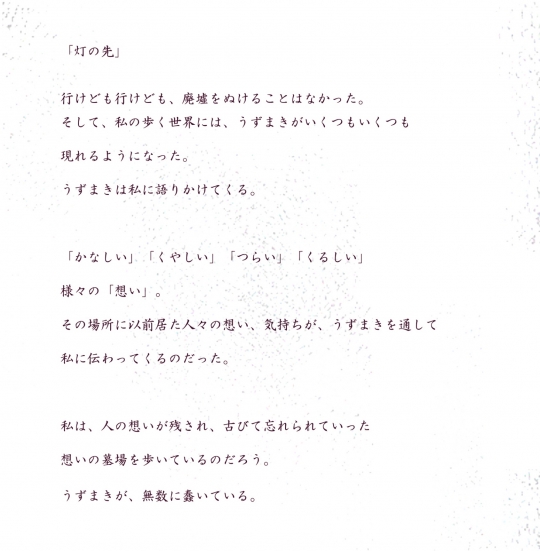 「灯の先」
行けども行けども、廃墟をぬけることはなかった。
そして、私の歩く世界には、うずまきがいくつもいくつも
現れるようになった。
うずまきは私に語りかけてくる。
「かなしい」「くやしい」「つらい」「くるしい」
様々の「想い」。
その場所に以前居た人々の想い、気持ちが、うずまきを通して
私に伝わってくるのだった。
私は、人の想いが残され、古びて忘れられていった
想いの墓場を歩いているのだろう。
うずまきが、無数に蠢いている。